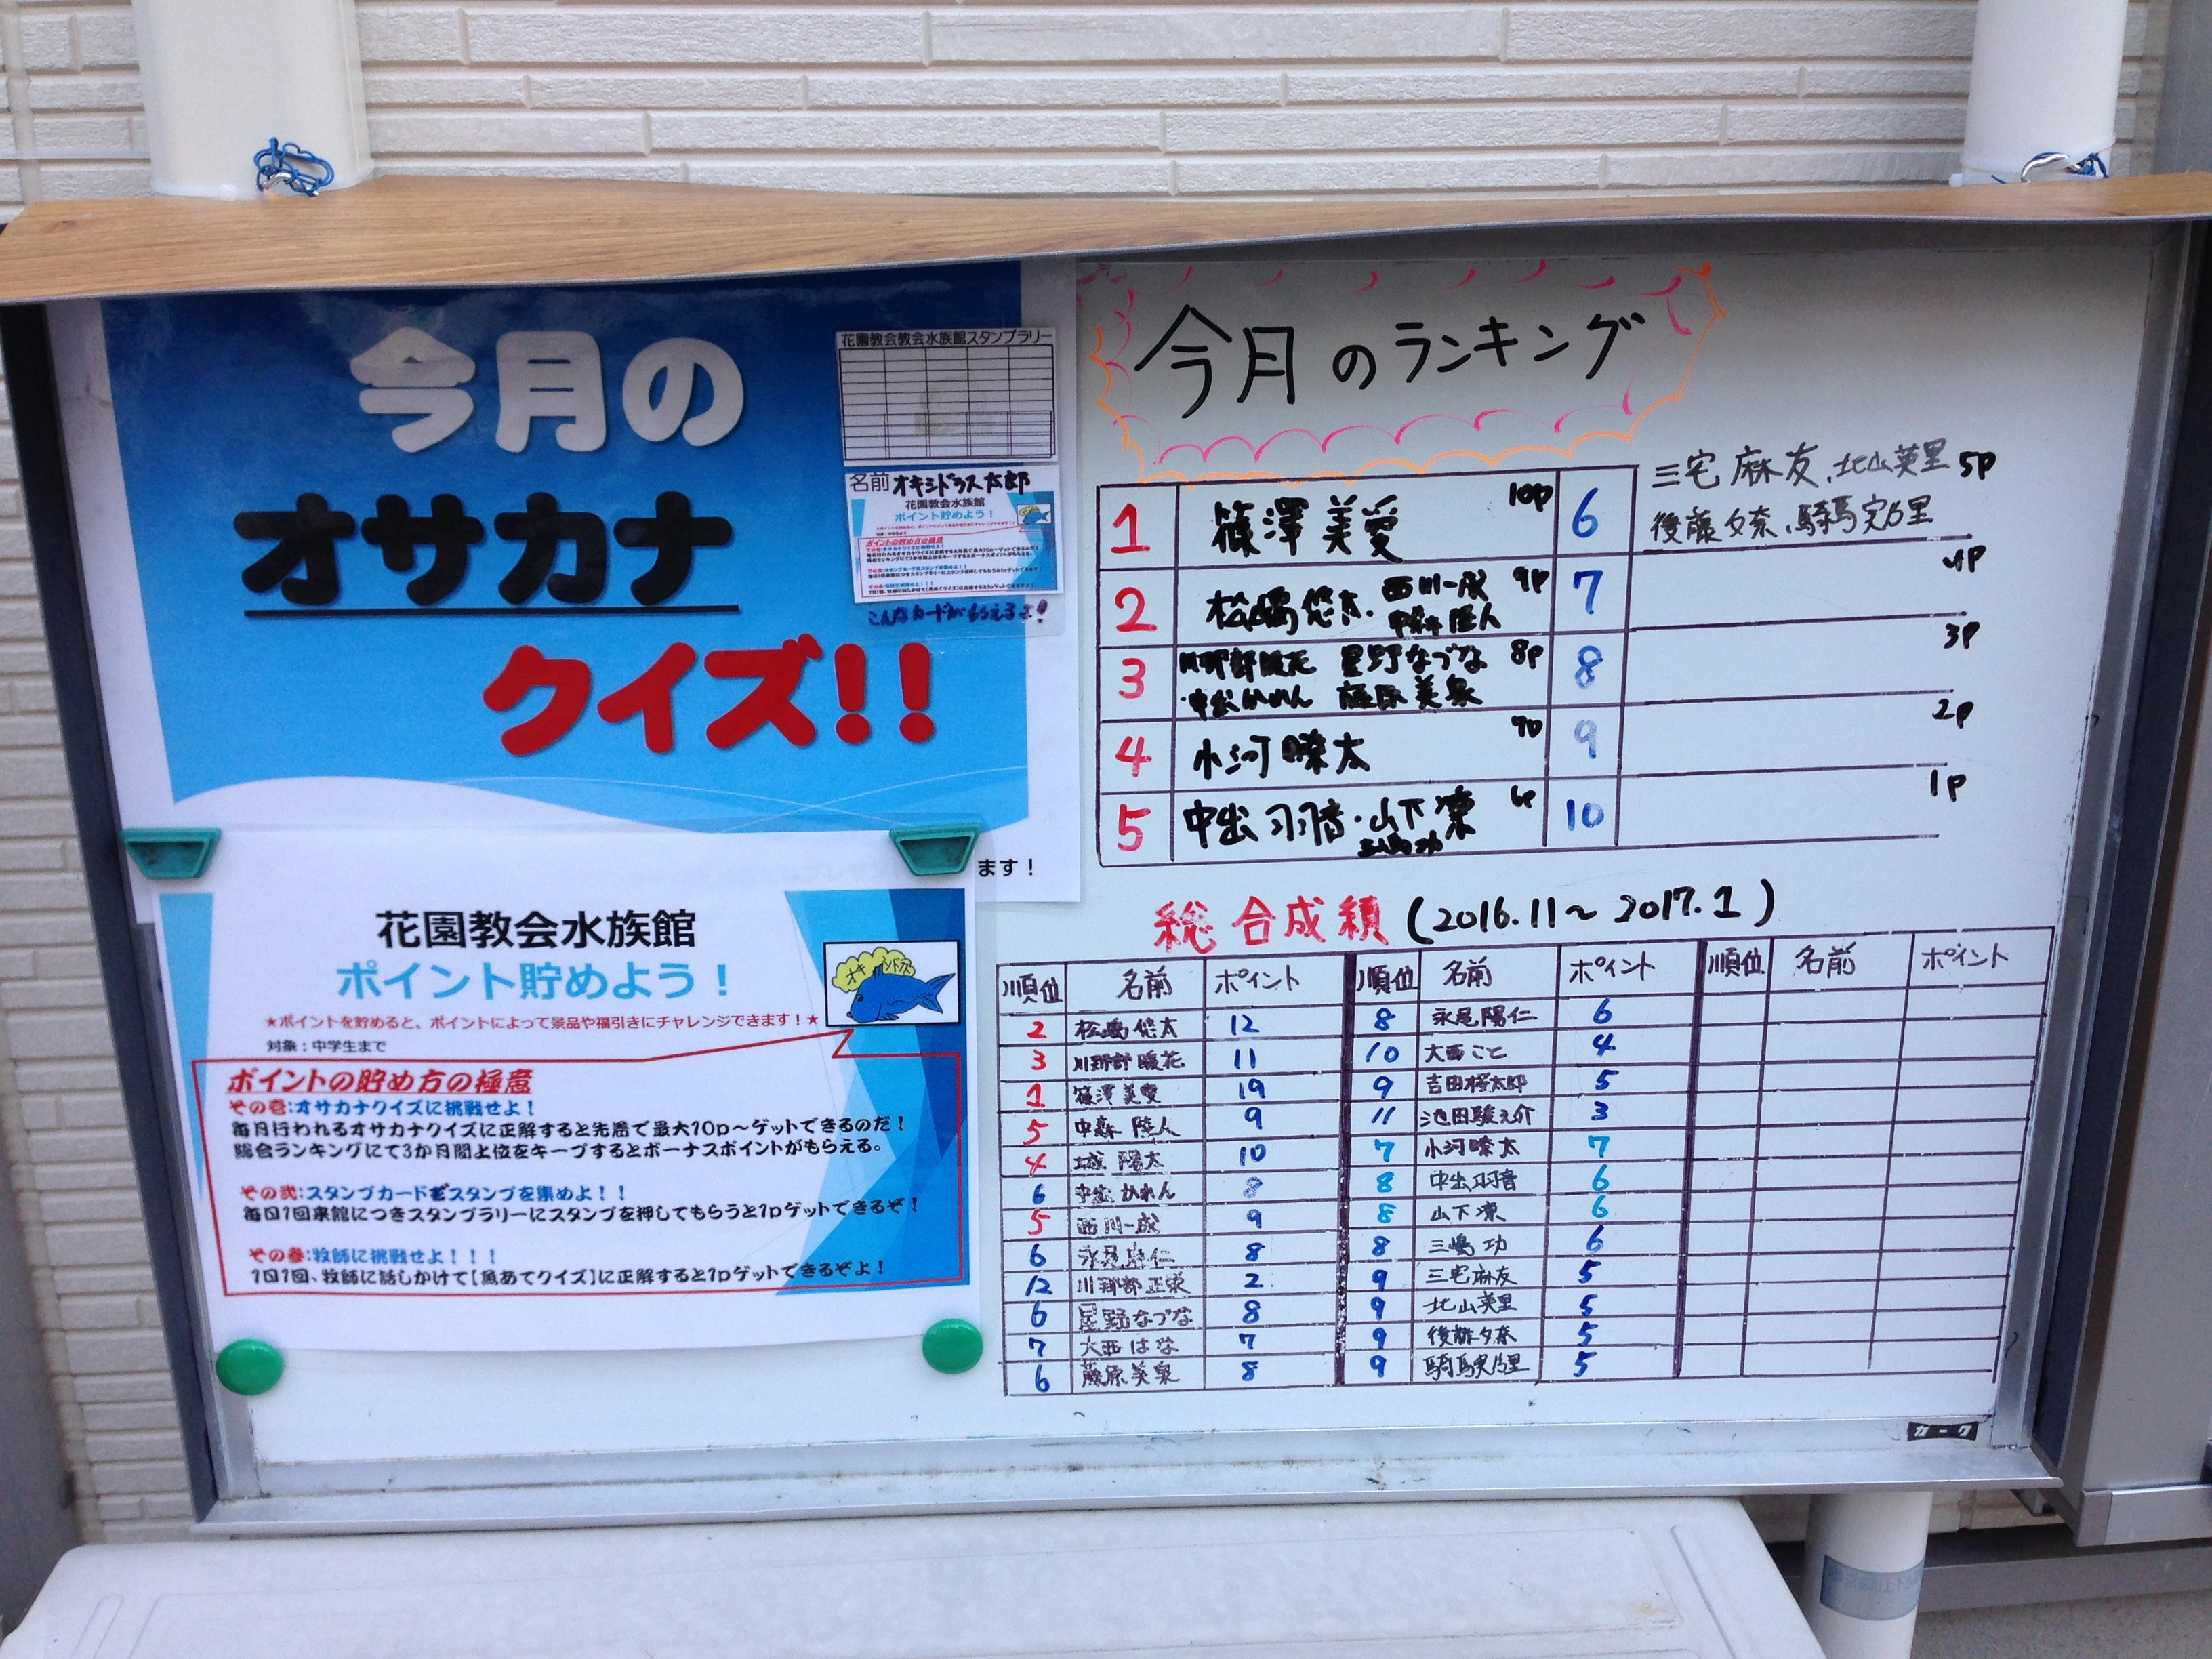 今月の
オサカナ
クイズ!!
花園教会教会水族館スタンプラリー
名前 オキシドラス太郎
花園教会水族館
ポイント貯めよう!
こんなカードがもらえるよ!
ます!
花園教会水族館
ポイント貯めよう!
オキシドラス
★ポイントを貯めると、ポイントによって景品や福引きにチャレンジできます!★
対象:中学生まで
ポイントの貯め方の極意
その壱:オサカナクイズに挑戦せよ!
毎月行われるオサカナクイズに正解すると先着で最大10p~ゲットできるのだ!
総合ランキングにて3か月間上位をキープするとボーナスポイントがもらえる。
その弐:スタンプカードをスタンプを集めよ!!
毎日1回来館につきスタンプラリーにスタンプを押してもらうと1pゲットできるぞ!
その参:牧師に挑戦せよ!!!
1日1回、牧師に話しかけて【魚あてクイズ】に正解すると1pゲットできるぞよ!
今月のランキング
1 篠澤美愛 10p
2 松嶋悠太・西川一成 中森陸人 9p
3 川那部暖花 星野なづな 8p
・中出かれん 藤原美泉
4 小河瞭太 7p
5 中出羽音・山下凛 三嶋功 6p
6 三宅麻友、北山英里 5p
後藤夕奈、騎馬実乃里
7 4p
8 3p
9 2p
10 1p
総合成績(2016.11~2017.1)
順位 名前 ポイント 順位 名前 ポイント 順位 名前 ポイント
2 松嶋悠太 12 8 永尾陽仁 6
3 川那部暖花 11 10 大西こと 4
1 篠澤美愛 19 9 吉田桜太郎 5
5 中森陸人 9 11 池田駿之介 3
4 城陽太 10 7 小河瞭太 7
6 中出かれん 8 8 中出羽音 6
5 西川一成 9 8 山下凛 6
6 永尾仁 8 8 三嶋功 6
12 川那部正栄 2 9 三宅麻友 5
6 星野なづな 8 9 北山英里 5
7 大西はな 7 9 後藤夕奈 5
6 藤原美泉 8 9 騎馬実乃里 5
カーク